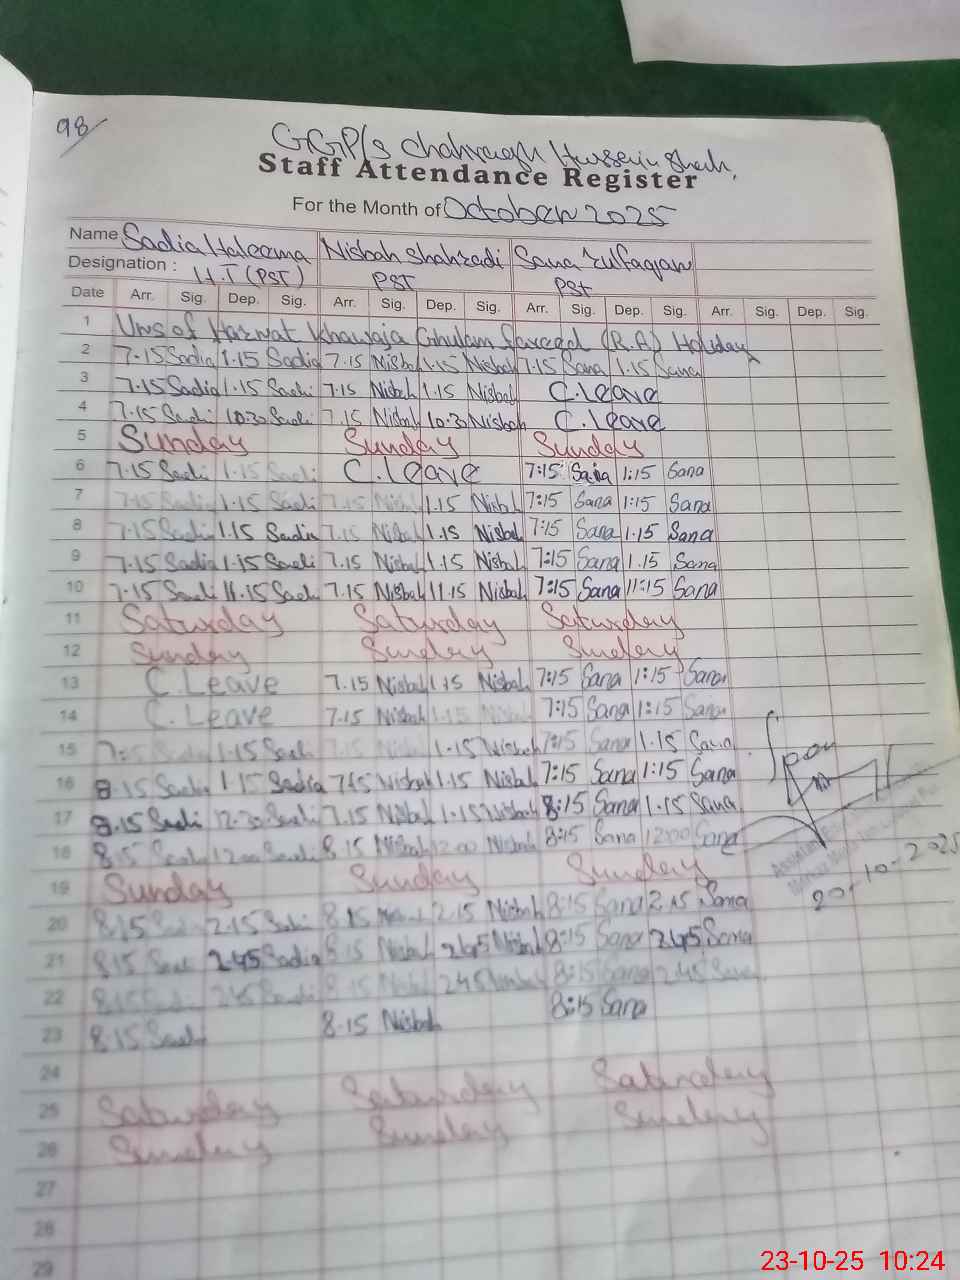 98/
GGP/S Chahragh Hussain Shah.
Staff Attendance Register
For the Month of October 2025
Name Sadia Haleema Nisbah Shahzadi Sana Zulfaqar
Designation : H.T (PST) PST PST
Date Arr. Sig. Dep. Sig. Arr. Sig. Dep. Sig. Arr. Sig. Dep. Sig. Arr. Sig. Dep. Sig.
1 Urs of Hazrat Khawaja Ghulam Fareed (R.A) Holiday
2 7.15 Sadia 1.15 Sadia 7.15 Nisbah 1.15 Nisbah 7.15 Sana 1.15 Sana
3 7.15 Sadia 1.15 Sadi 7.15 Nisbah 1.15 Nisbah C.Leave
4 7.15 Sadi 10.30 Sadi 7.15 Nisbah 10.30 Nisbah C.Leave
5 Sunday Sunday Sunday
6 7.15 Sadi 1.15 Sadi C.Leave 7:15 Sana 1:15 Sana
7 7.15 Sadi 1.15 Sadi 7.15 Nisbah 1.15 Nisbah 7:15 Sana 1:15 Sana
8 7.15 Sadi 1.15 Sadia 7.15 Nisbah 1.15 Nisbah 7:15 Sana 1.15 Sana
9 7.15 Sadia 1.15 Sadi 7.15 Nisbah 1.15 Nisbah 7:15 Sana 1.15 Sana
10 7.15 Sadi 11.15 Sadi 7.15 Nisbah 11.15 Nisbah 7:15 Sana 11:15 Sana
11 Saturday Saturday Saturday
12 Sunday Sunday Sunday
13 C.Leave 7.15 Nisbah 1.15 Nisbah 7:15 Sana 1:15 Sana
14 C.Leave 7.15 Nisbah 1.15 Nisbah 7:15 Sana 1:15 Sana
15 1.15 Sadi 7.15 1.15 Nisbah 7:15 Sana 1.15 Sana
16 8.15 Sadia 1.15 Sadia 7.15 Nisbah 1.15 Nisbah 7:15 Sana 1:15 Sana
17 8.15 Sadi 12.30 Sadi 7.15 Nisbah 1.15 Nisbah 8:15 Sana 1.15 Sana
18 8.15 Sadi 12.00 Sadi 8.15 Nisbah 12.00 Nisbah 8:15 Sana 12:00 Sana
19 Sunday Sunday Sunday
20-10-2025
20 8.15 Sadi 2.15 Sadi 8.15 Nisbah 2.15 Nisbah 8:15 Sana 2.15 Sana
21 8.15 Sadi 2.45 Sadia 8.15 Nisbah 2.45 Nisbah 8:15 Sana 2.45 Sana
22 8.15 Sadi 2.45 Sadi 8.15 Nisbah 2.45 Nisbah 8:15 Sana 2.45 Sana
23 8.15 Sadi 8.15 Nisbah 8:15 Sana
24
25 Saturday Saturday Saturday
26 Sunday Sunday Sunday
27
28
29
23-10-25 10:24